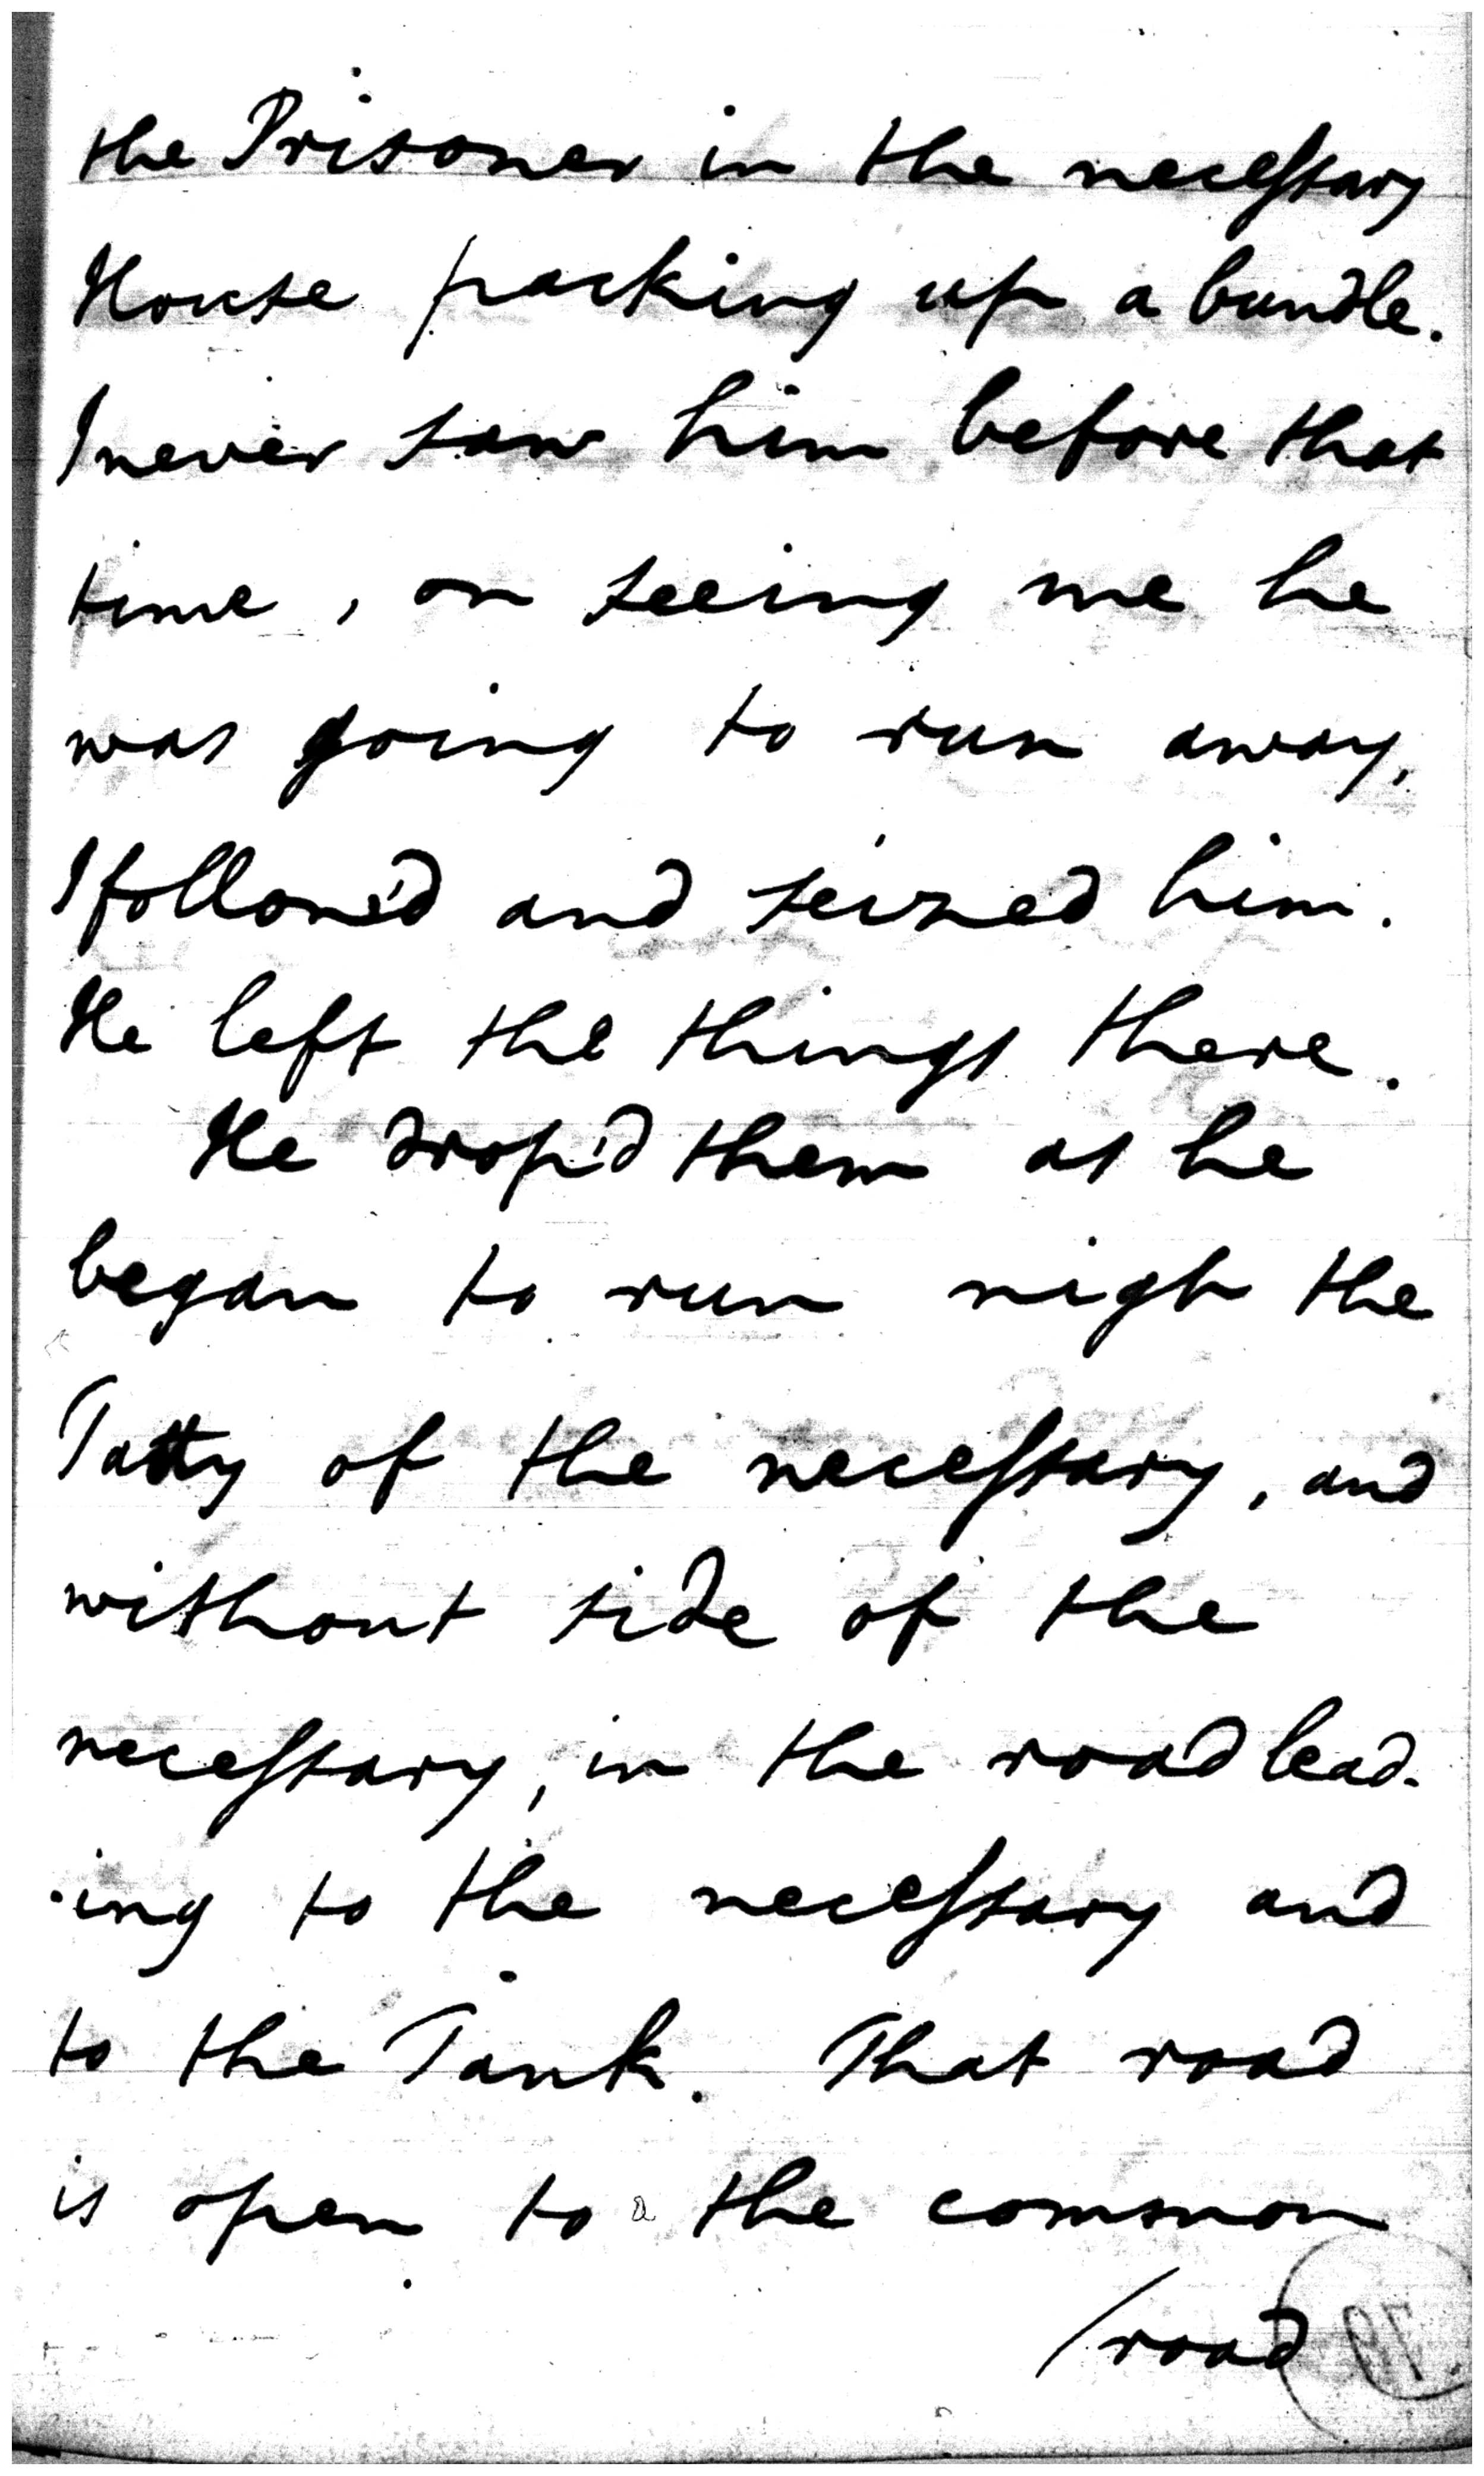 the Prisoner in the necessary
House packing up a bundle.
I never saw him before that
time, on seeing me he
was going to run away,
I follow'd and seized him.
He left the things there.
He drop'd them as he
began to run nigh the
Tatty of the necessary, and
without side of the
necessary, in the road lead-
-ing to the necessary and
to the Tank. That road
is open to a the common
/road